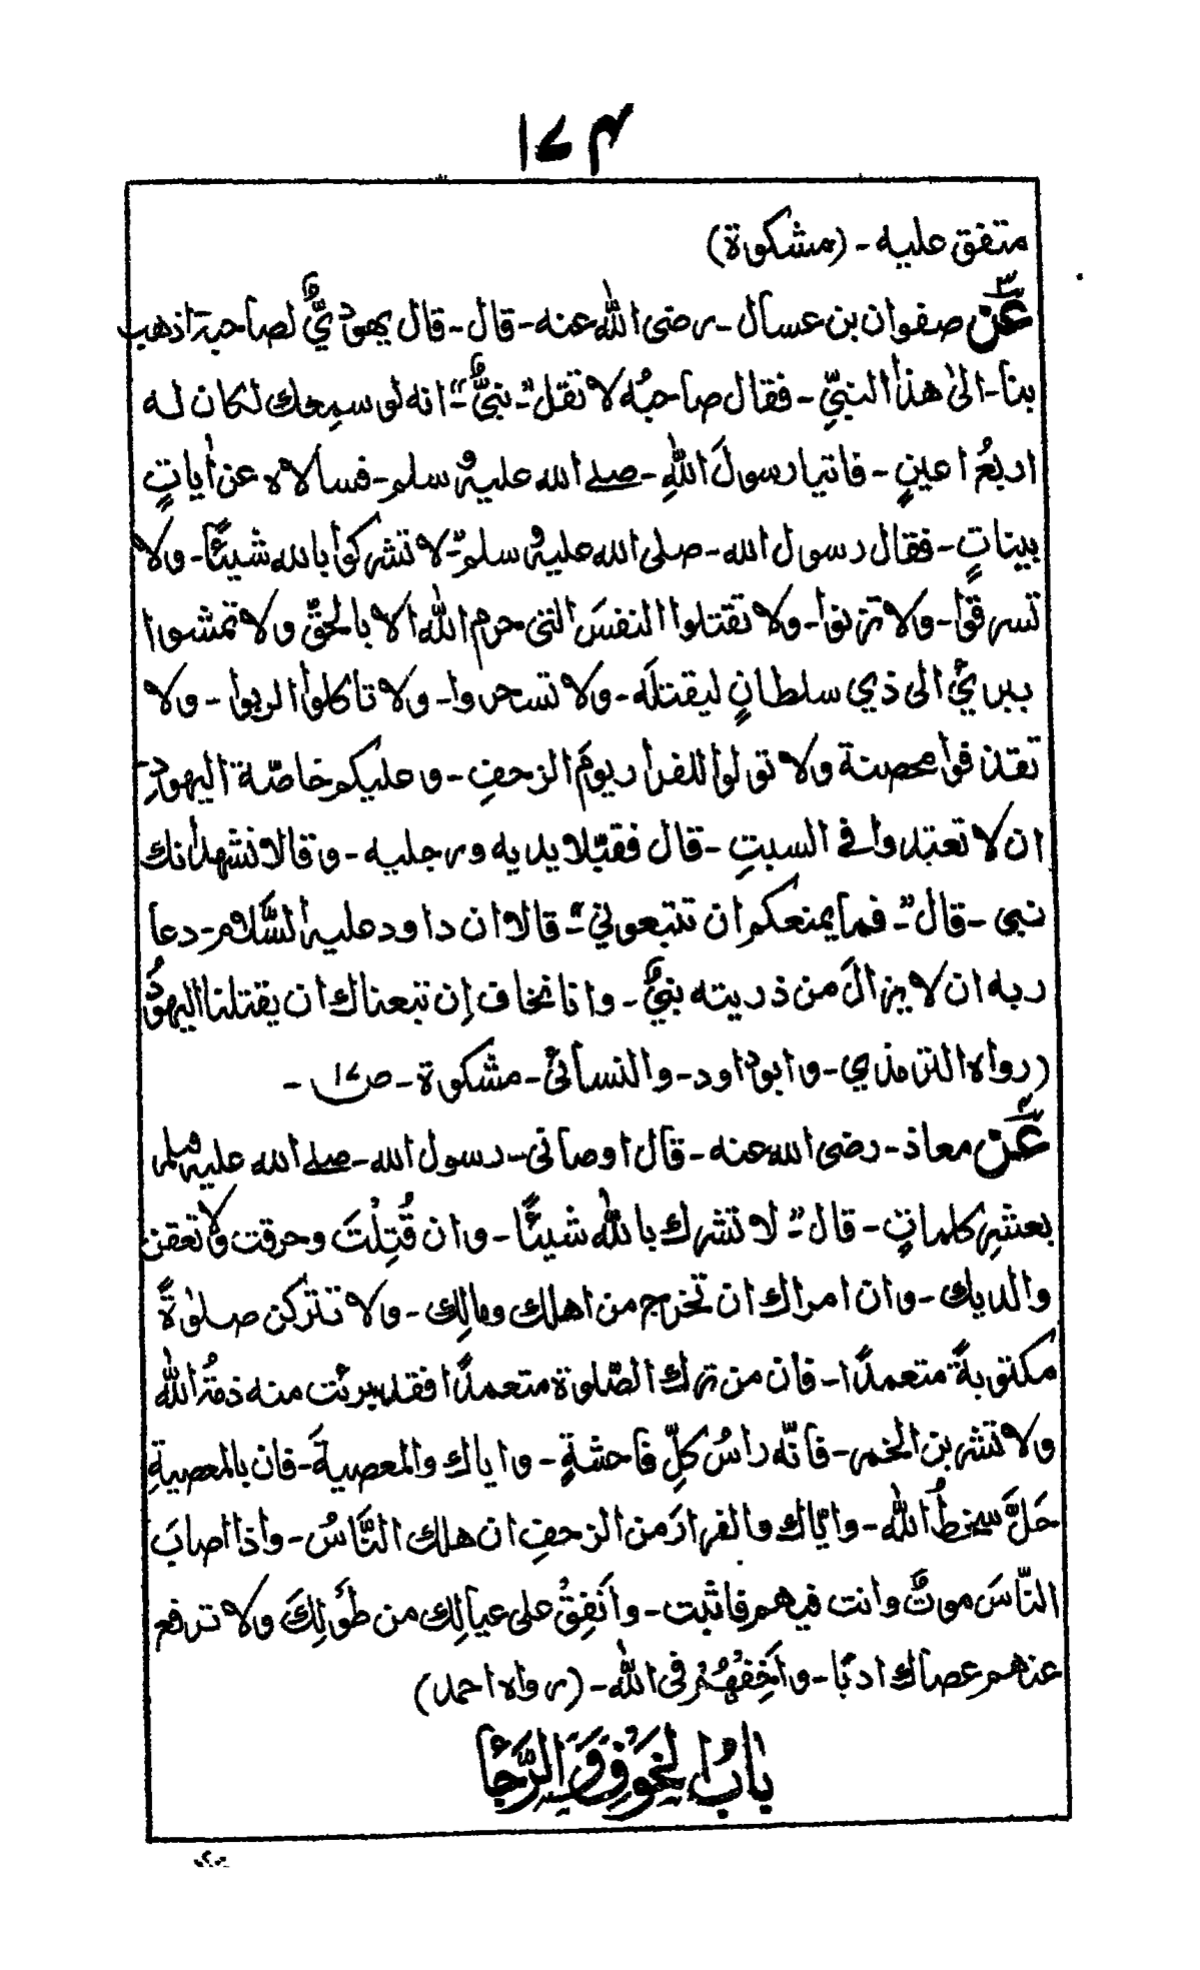 ١٧٤
متفق عليه - (مشكوة)
عن٣ صفوان بن عسال - رضى الله عنه - قال - قال يهوديٌّ لصاحبه اذهب
بنا - الىٰ هذا النبيِّ - فقال صاحبُه لا تقل "- نبيٌّ "- انه لو سمعك لكان له
اربعُ اعينٍ - فاتيا رسولَ اللهِ - صلے الله عليه وسلم - فسألاه عن اٰياتٍ
بيناتٍ - فقال رسول الله - صلى الله عليه وسلم "- لا تشركوا بالله شيئًا - ولا
تسرقوا - ولا تزنوا - ولا تقتلوا النفسَ التى حرم الله الا بالحقِّ ولا تمشوا
ببرئٍ الى ذي سلطانٍ ليقتلَه - ولا تسحروا - ولا تاكلوا الربوا - ولا
تقذفوا محصنة ولا تولوا للفرار يومَ الزحفِ - وعليكم خاصّة اليهودِ -
ان لا تعتدوا فى السبتِ - قال فقبّلا يديه ورجليه - وقالا نشهد انك
نبى - قال "- فما يمنعكم ان تتبعوني "- قالا ان داود عليه السَّلام - دعا
ربه ان لا يزالَ من ذريته نبيٌّ - وانا نخاف اِن تبعناك ان يقتلنا اليهودُ
(رواه الترمذي - وابوداود - والنسائىُ - مشكوة - ص١٧ -
عن٤ معاذ - رضى الله عنه - قال اوصانى - رسول الله - صلے الله عليه وسلم
بعشرِ كلماتٍ - قال "- لا تشرك بالله شيئًا - وان قُتِلْتَ وحرقت ولا تعقن
والديك - وان امراك ان تخرج من اهلك ومالِك - ولا تتركن صلوٰةً
مكتوبةً متعمدًا - فان من ترك الصّلوة متعمدًا فقد برئت منه ذمةُ الله
ولا تشربن الخمر - فانّه راسُ كلِّ فاحشةٍ - واياك والمعصيةَ - فان بالمعصيةِ
حَلَّ سخطُ الله - وايّاك والفرارَ من الزحفِ ان هلك النَّاسُ - واذا اصابَ
النّاسَ موتٌ وانت فيهم فاثبت - وأنفِقْ على عيالِك من طَوْلِكَ ولا ترفع
عنهم عصاك ادبًا - وأَخِفْهُمْ فى الله - (رواه احمد)
بَابُ الْخَوْفِ وَالرَّجَاءِ